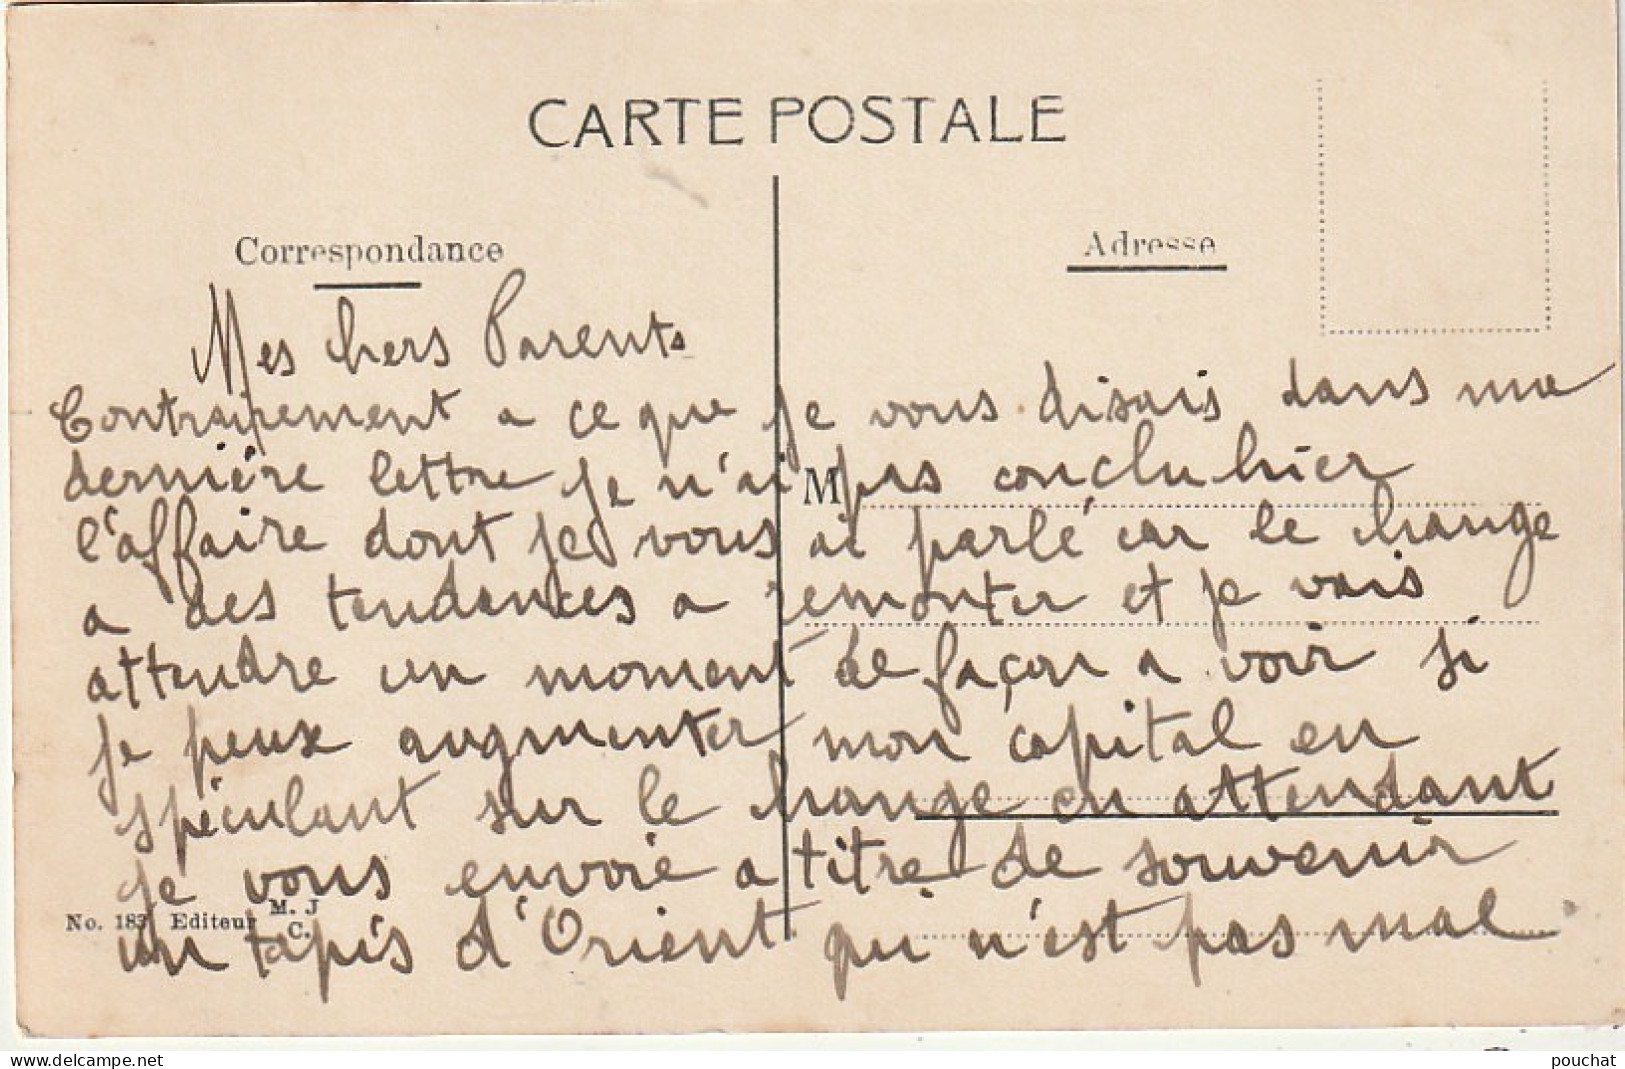 CARTE POSTALE
Correspondance
Adresse
Mes chers Parents
Contrairement a ce que je vous disais dans ma
derniére lettre je n'ai pas conclu hier
M
l'affaire dont je vous ai parlé car le change
a des tendances a remonter et je vais
attendre un moment de façon a voir si
je peux augmenter mon capital en
spéculant sur le change en attendant
je vous envoie a titre de souvenir
un tapis d'Orient qui n'est pas mal
No. 183 Editeur M. J. C.
pouchat
www.delcampe.net